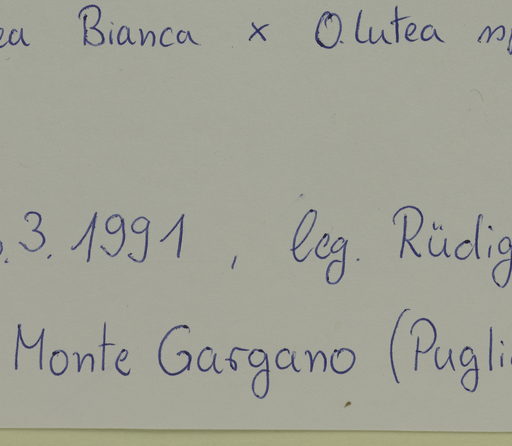 ea Bianca x O. lutea
.3.1991, leg. Rüdig
Monte Gargano (Pugli